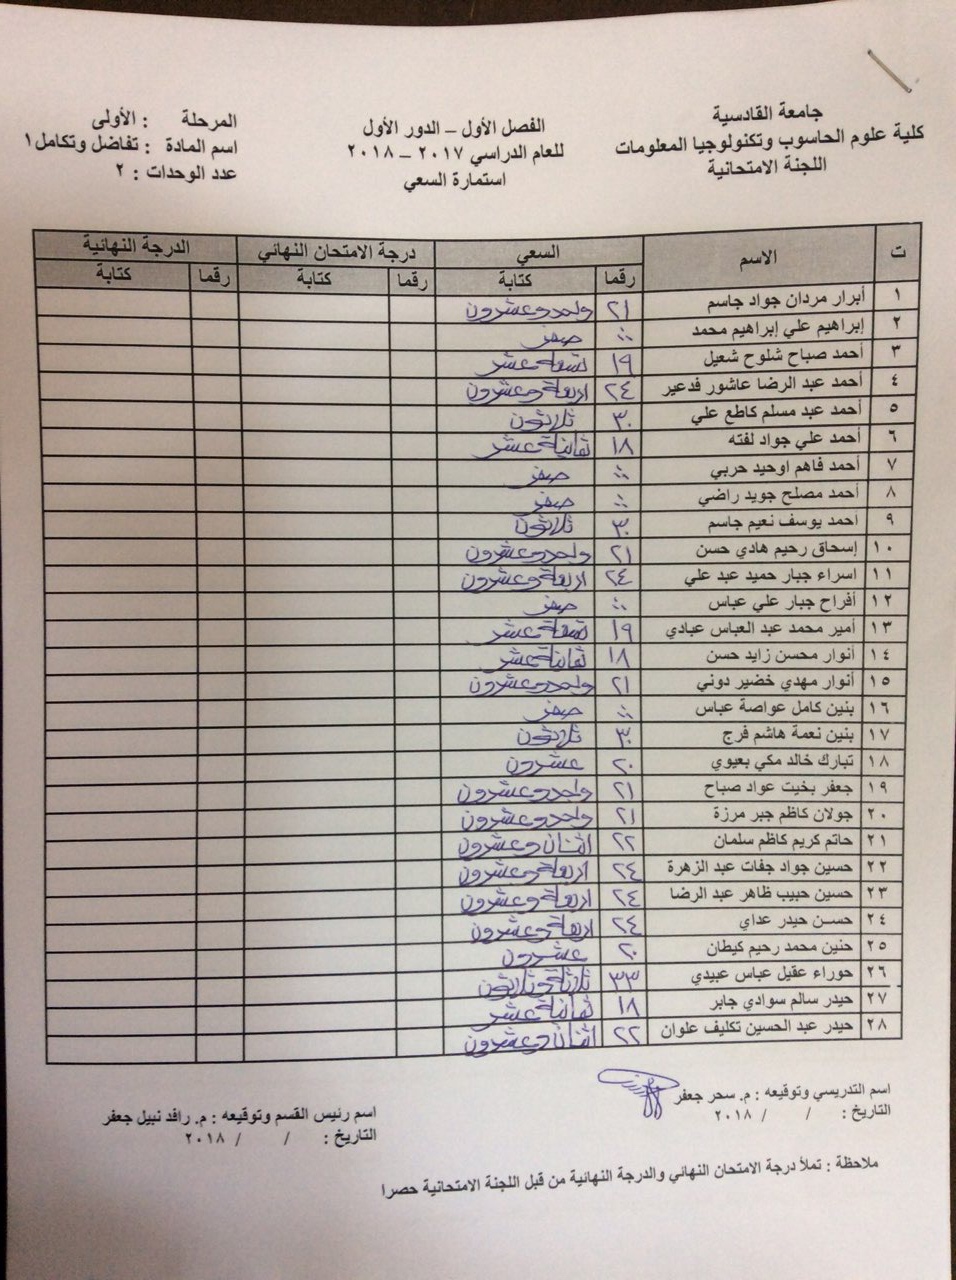 جامعة القادسية
كلية علوم الحاسوب وتكنولوجيا المعلومات
اللجنة الامتحانية
الفصل الأول – الدور الأول
للعام الدراسي ٢٠١٧ – ٢٠١٨
استمارة السعي
المرحلة : الأولى
اسم المادة : تفاضل وتكامل ١
عدد الوحدات : ٢
ت الاسم السعي درجة الامتحان النهائي الدرجة النهائية
رقما كتابة رقما كتابة رقما كتابة
١ أبرار مردان جواد جاسم ٢١ واحد وعشرون
٢ إبراهيم علي إبراهيم محمد صفر
٣ أحمد صباح شلوح شعيل ١٩ تسعة عشر
٤ أحمد عبد الرضا عاشور فدعير ٢٤ اربعة وعشرون
٥ أحمد عبد مسلم كاطع علي ٣٠ ثلاثون
٦ أحمد علي جواد لفته ١٨ ثمانية عشر
٧ أحمد فاهم اوحيد حربي صفر
٨ أحمد مصلح جويد راضي صفر
٩ أحمد يوسف نعيم جاسم ٣٠ ثلاثون
١٠ إسحاق رحيم هادي حسن ٢١ واحد وعشرون
١١ اسراء جبار حميد عبد علي ٢٤ اربعة وعشرون
١٢ أفراح جبار علي عباس صفر
١٣ أمير محمد عبد العباس عبادي ١٩ تسعة عشر
١٤ أنوار محسن زايد حسن ١٨ ثمانية عشر
١٥ أنوار مهدي خضير دوني ٢١ واحد وعشرون
١٦ بنين كامل عواصة عباس صفر
١٧ بنين نعمة هاشم فرج ٣٠ ثلاثون
١٨ تبارك خالد مكي بعيوي ٢٠ عشرون
١٩ جعفر بخيت عواد صباح ٢١ واحد وعشرون
٢٠ جولان كاظم جبر مرزة ٢١ واحد وعشرون
٢١ حاتم كريم كاظم سلمان ٢٢ اثنان وعشرون
٢٢ حسين جواد جفات عبد الزهرة ٢٤ اربعة وعشرون
٢٣ حسين حبيب ظاهر عبد الرضا ٢٤ اربعة وعشرون
٢٤ حسن حيدر عداي ٢٤ اربعة وعشرون
٢٥ حنين محمد رحيم كيطان ٢٠ عشرون
٢٦ حوراء عقيل عباس عبيدي ٣٣ ثلاثة وثلاثون
٢٧ حيدر سالم سوادي جابر ١٨ ثمانية عشر
٢٨ حيدر عبد الحسين تكليف علوان ٢٢ اثنان وعشرون
اسم التدريسي وتوقيعه : م. سحر جعفر
التاريخ : / / ٢٠١٨
اسم رئيس القسم وتوقيعه : م. رافد نبيل جعفر
التاريخ : / / ٢٠١٨
ملاحظة : تملأ درجة الامتحان النهائي والدرجة النهائية من قبل اللجنة الامتحانية حصرا